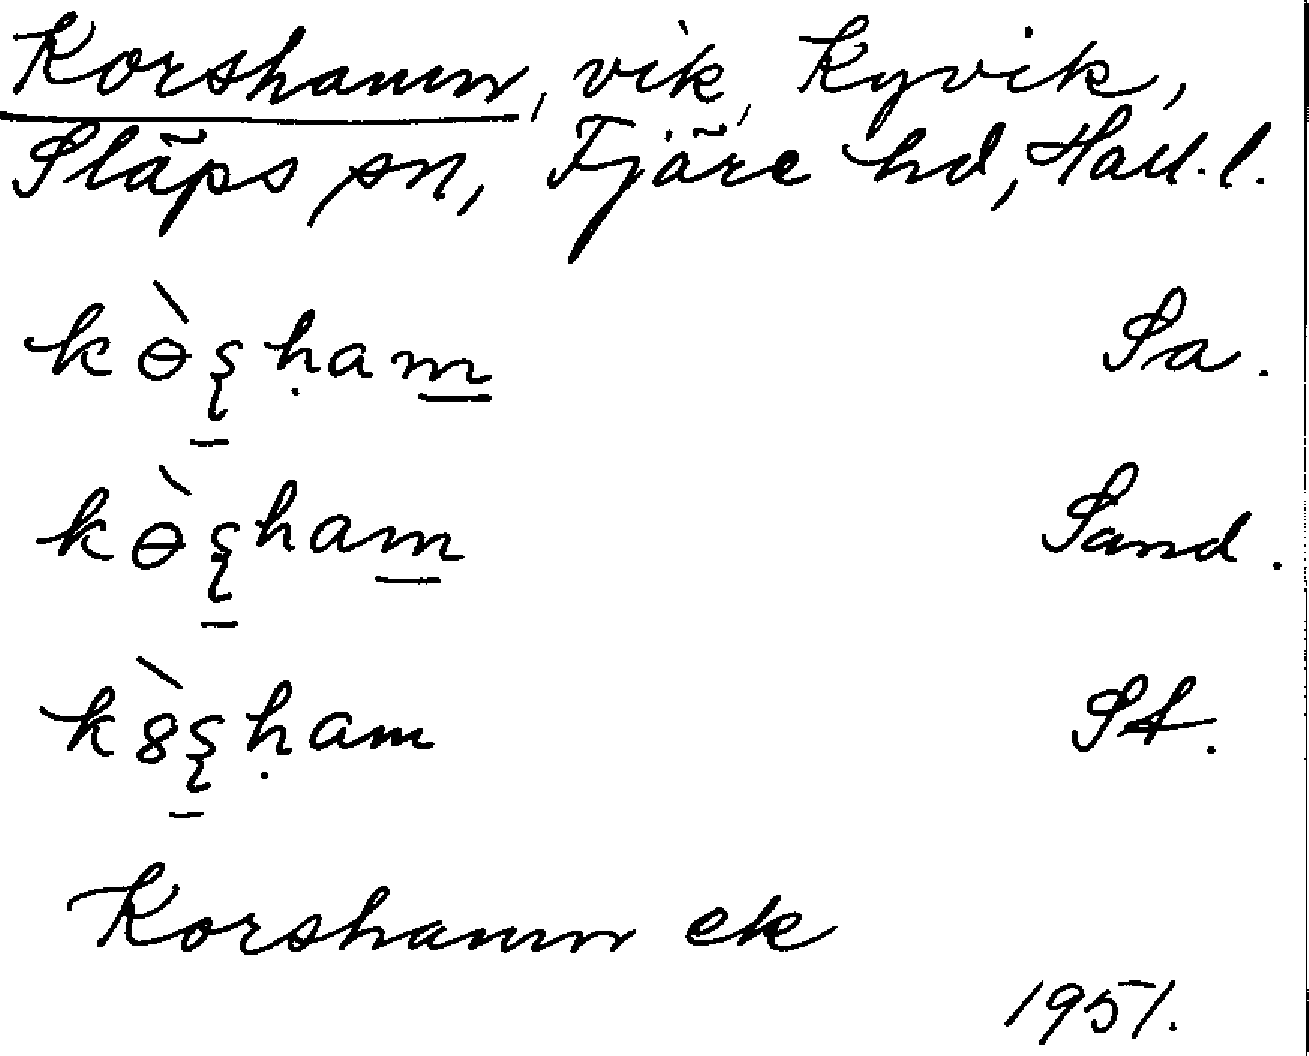 Korshamn, vik, Kyvik,
Släps sn, Fjäre hd, Hall. l.
kɵ̀ʂḥam̲ Sa.
kɵ̀ʂham̲ Sand.
k8̀ʂḥam St.
Korshamn ek
1951.